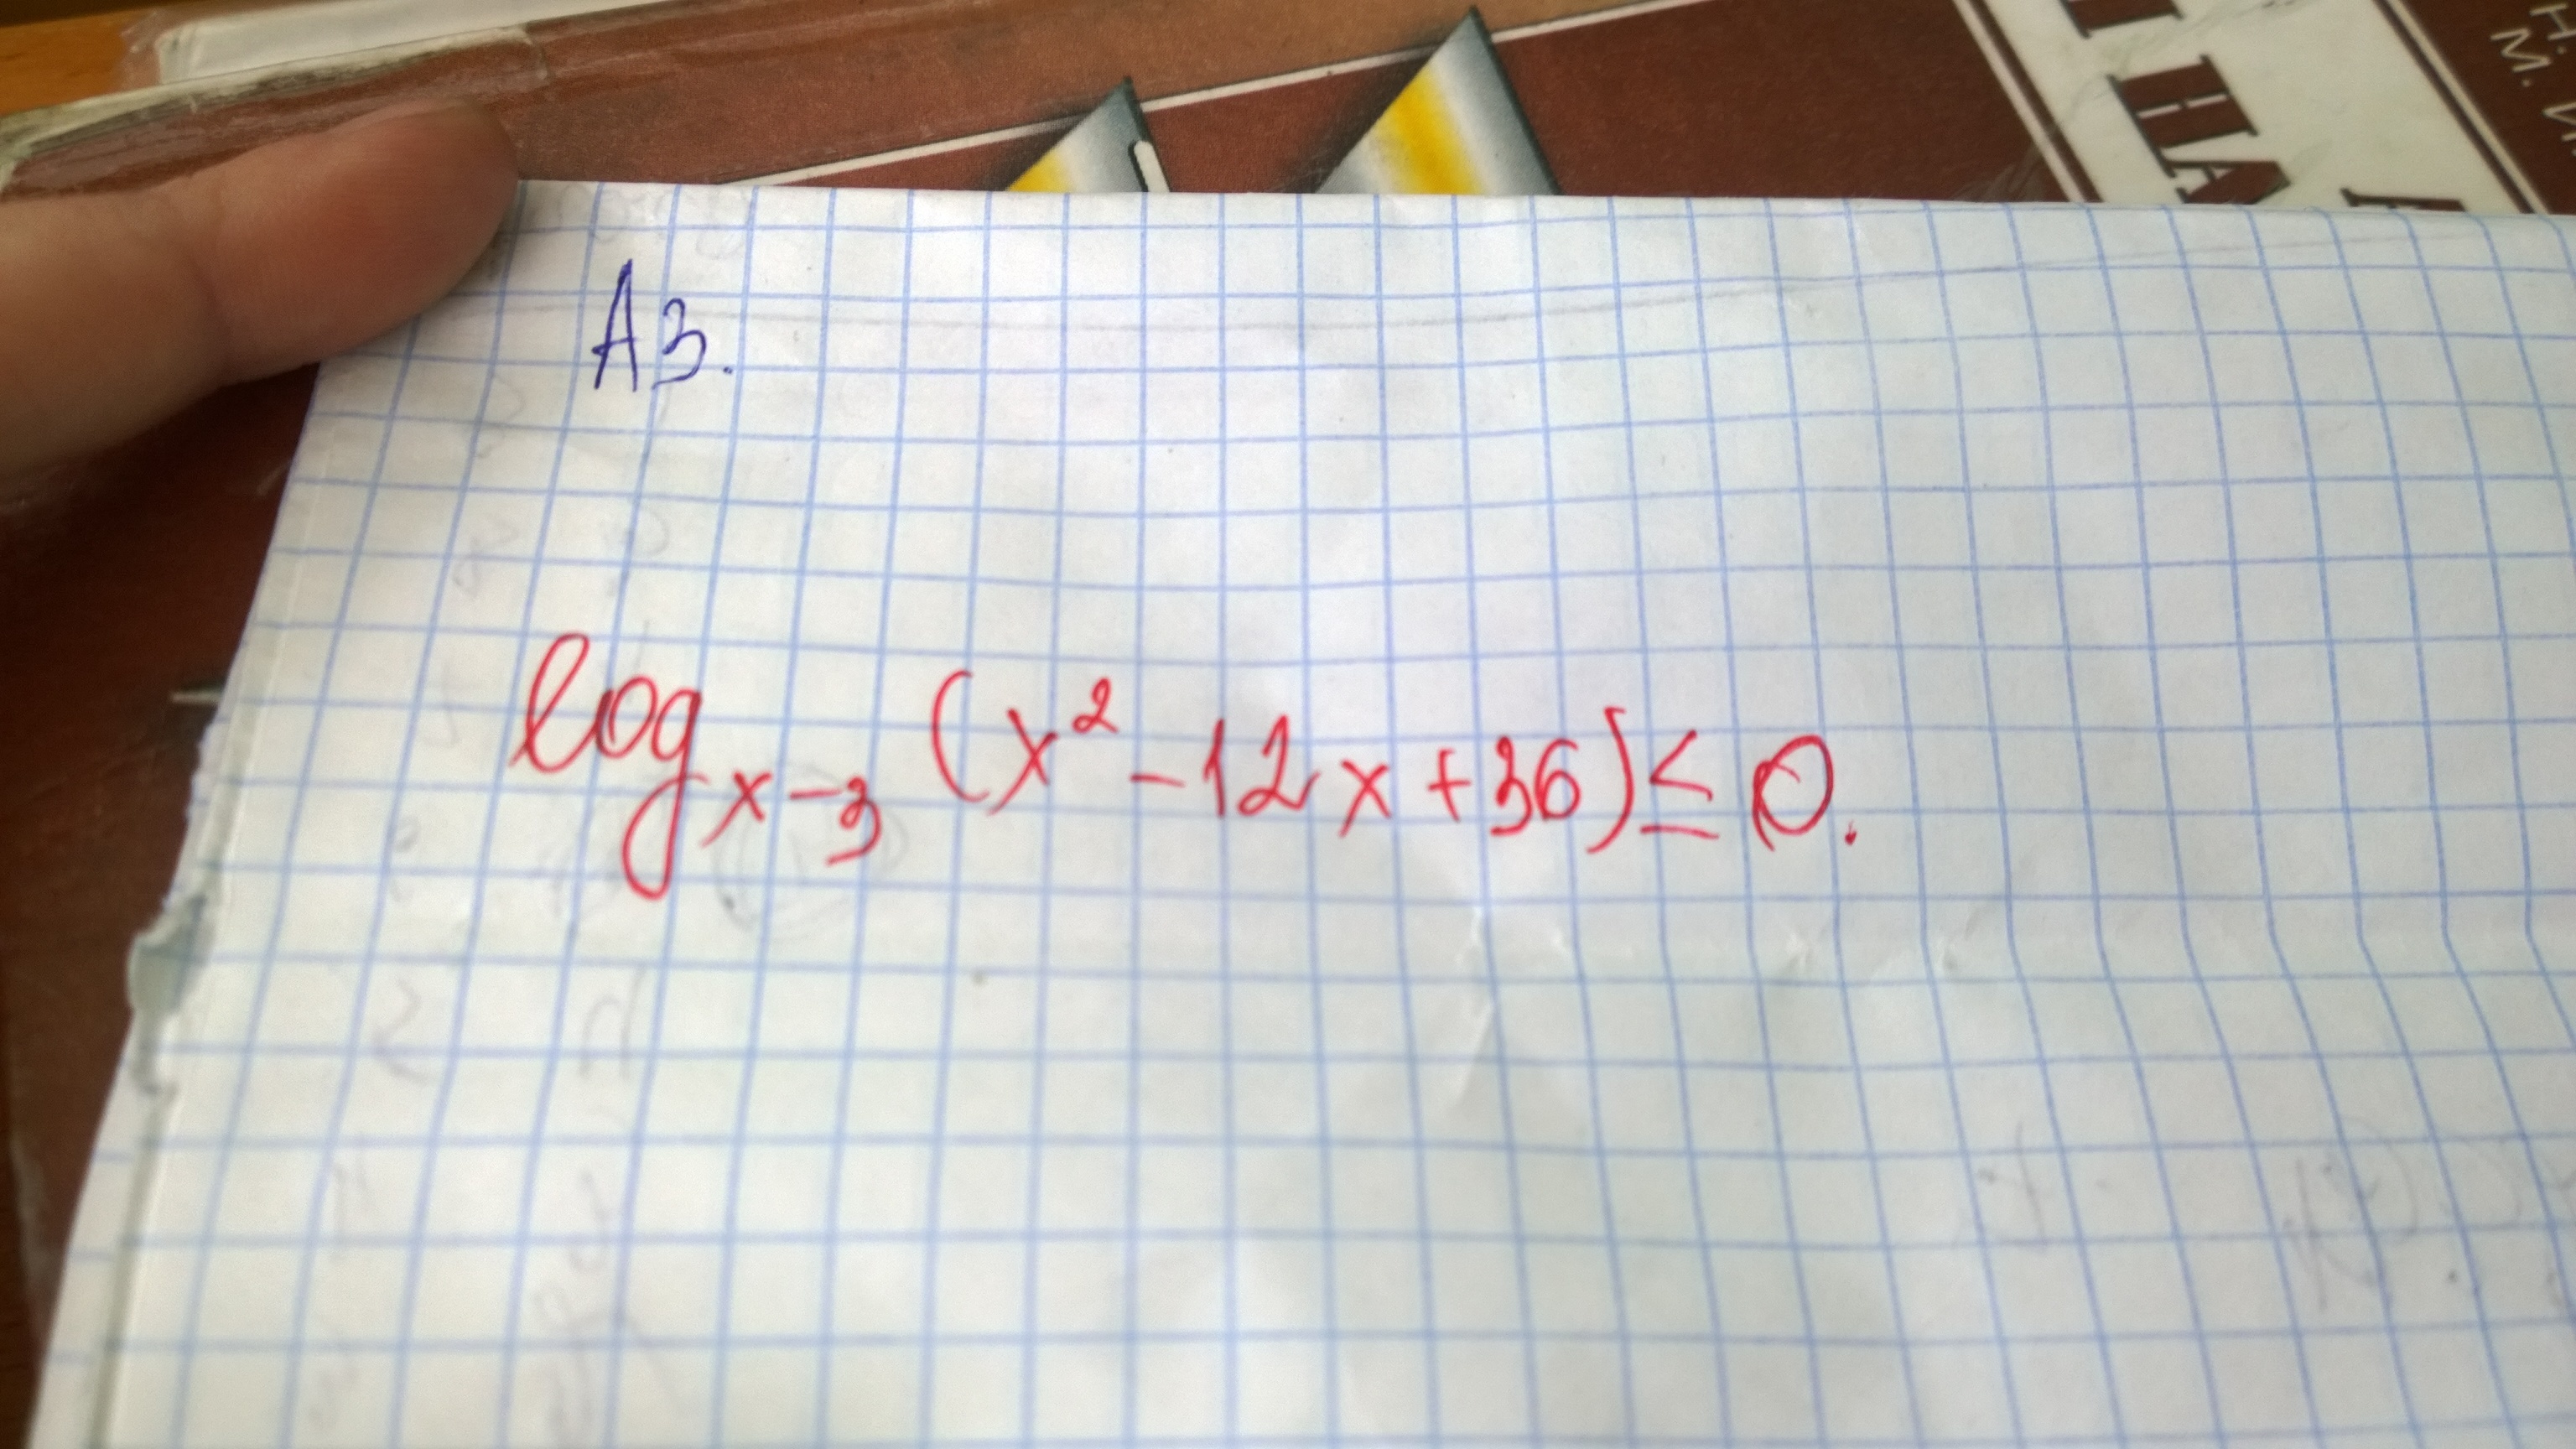 А3.
log x-3 (x² - 12x + 36) ≤ 0.